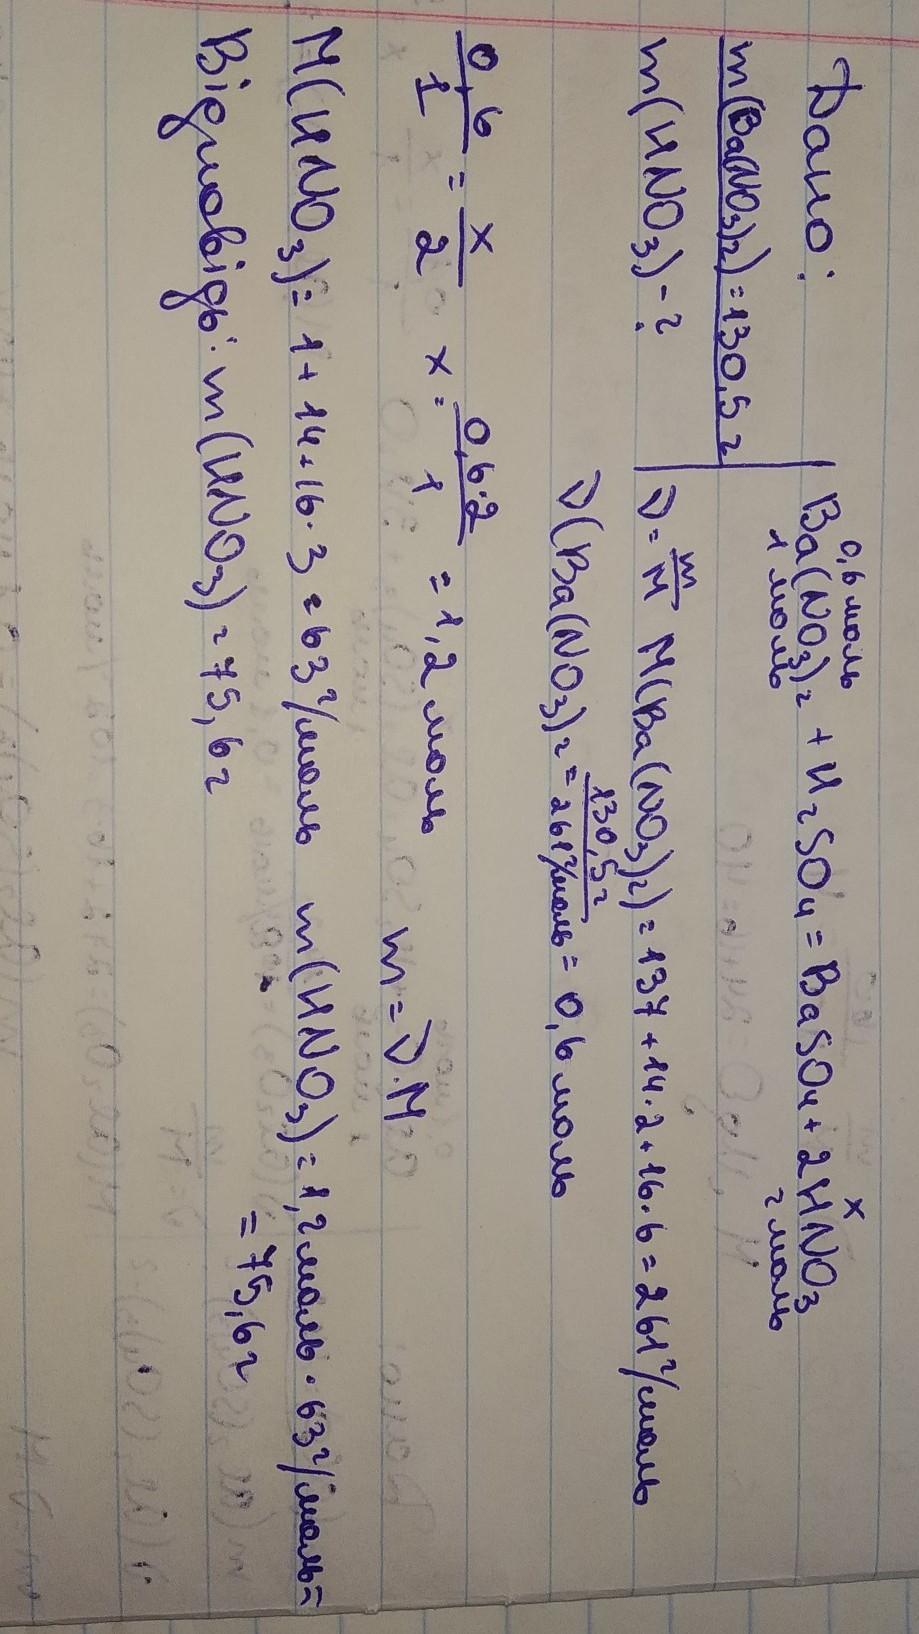 Дано:
m(Ba(NO3)2) = 130,5 г
m(HNO3) - ?
0,6 моль x
Ba(NO3)2 + H2SO4 = BaSO4 + 2HNO3
1 моль 2 моль
ν = m/M M(Ba(NO3)2) = 137 + 14·2 + 16·6 = 261 г/моль
ν(Ba(NO3)2 = 130,5 г / 261 г/моль = 0,6 моль
0,6/1 = x/2 x = 0,6·2/1 = 1,2 моль m = ν·M
M(HNO3) = 1 + 14 + 16·3 = 63 г/моль m(HNO3) = 1,2 моль · 63 г/моль =
= 75,6 г
Відповідь: m(HNO3) = 75,6 г